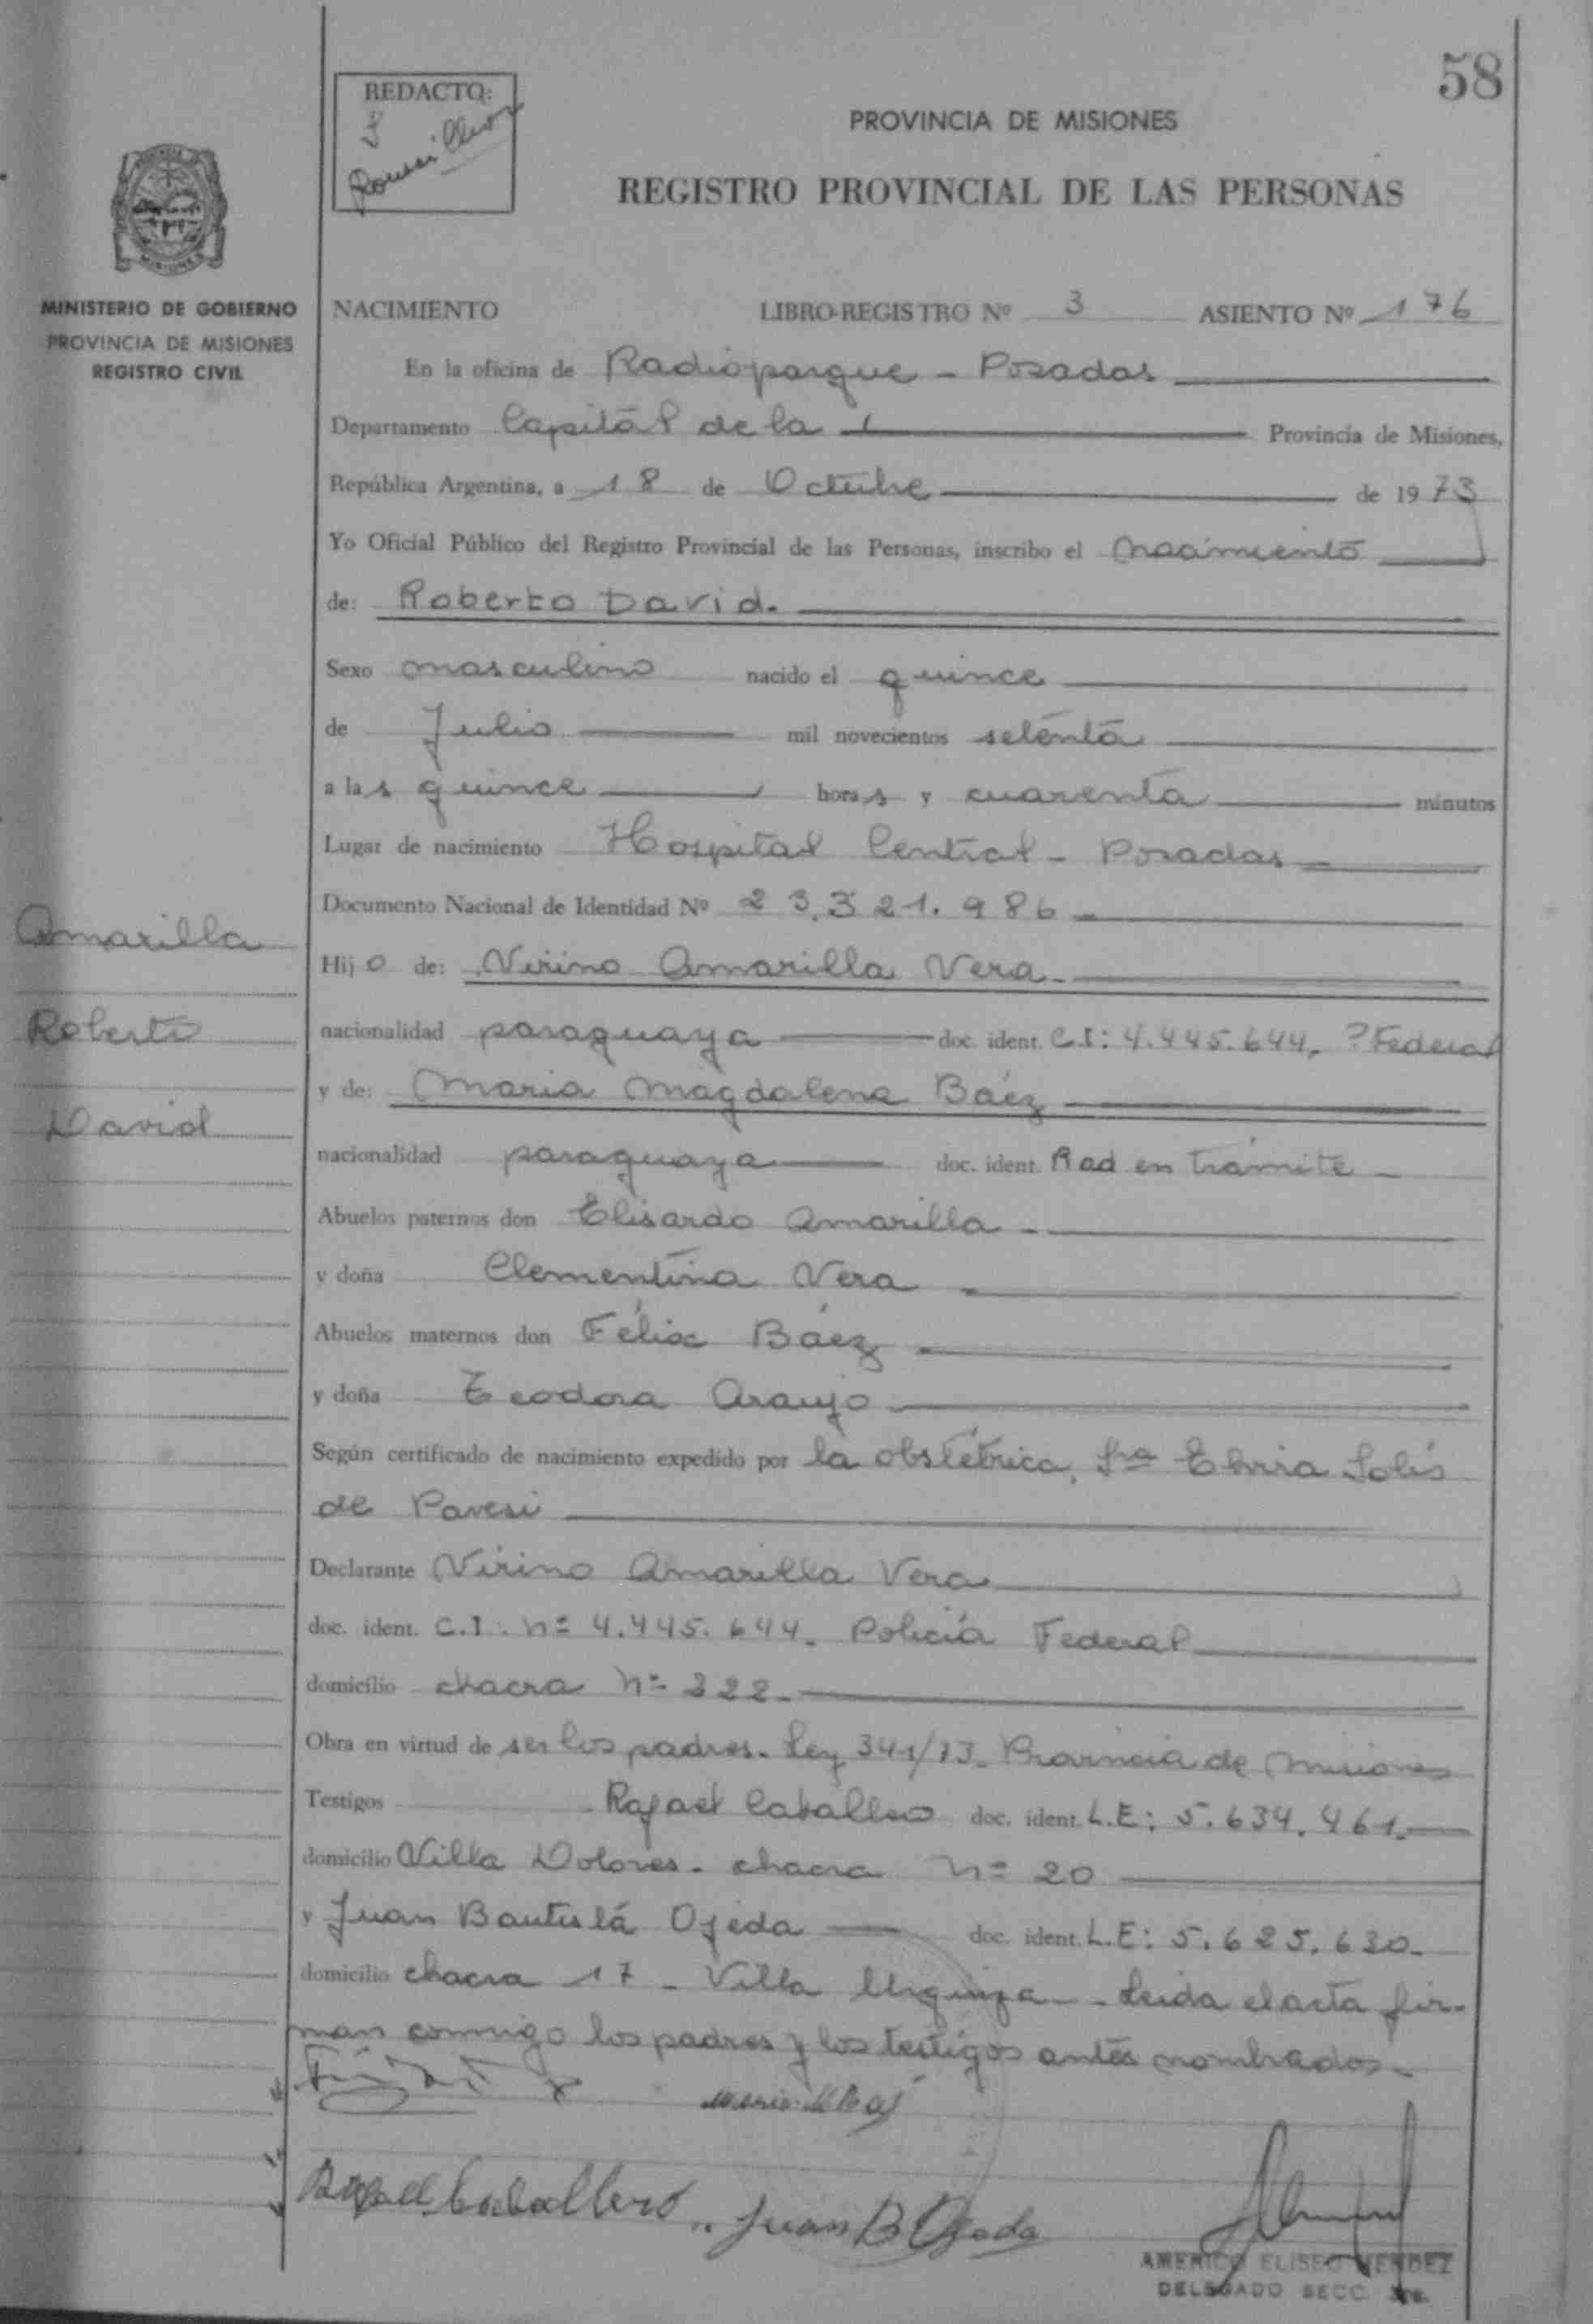 58
REDACTO:
PROVINCIA DE MISIONES
REGISTRO PROVINCIAL DE LAS PERSONAS
MISIONES
MINISTERIO DE GOBIERNO
PROVINCIA DE MISIONES
REGISTRO CIVIL
NACIMIENTO LIBRO-REGISTRO Nº 3 ASIENTO Nº 176
En la oficina de Radioparque - Posadas
Departamento Capital de la Provincia de Misiones,
República Argentina, a 18 de Octubre de 1973
Yo Oficial Público del Registro Provincial de las Personas, inscribo el nacimiento
de: Roberto David.
Sexo masculino nacido el quince
de Julio mil novecientos setenta
a las quince horas y cuarenta minutos
Lugar de nacimiento Hospital Central - Posadas
Documento Nacional de Identidad Nº 23.321.986
Amarilla
Hijo de: Virino Amarilla Vera
Roberto
nacionalidad paraguaya doc. ident. C.I: 4.445.644. P Federal
y de: Maria Magdalena Báez
David
nacionalidad paraguaya doc. ident. Rad en trámite
Abuelos paternos don Elisardo Amarilla
y doña Clementina Vera
Abuelos maternos don Félix Báez
y doña Teodora Araujo
Según certificado de nacimiento expedido por la obstétrica, Sra Elvira Solis
de Pavesi
Declarante Virino Amarilla Vera
doc. ident. C.I. nº 4.445.644. Policía Federal
domicilio chacra nº 322.
Obra en virtud de ser los padres. Ley 341/73. Provincia de Misiones
Testigos Rafael Caballero doc. ident. L.E: 5.634.461.
domicilio Villa Dolores. chacra nº 20
y Juan Bautista Ojeda doc. ident. L.E: 5.625.630.
domicilio chacra 17 - Villa Urquiza. Leida el acta fir-
man conmigo los padres y los testigos antes nombrados.
Rafael Caballero Juan B Ojeda
AMERICO ELISEO MENDEZ
DELEGADO SECC.